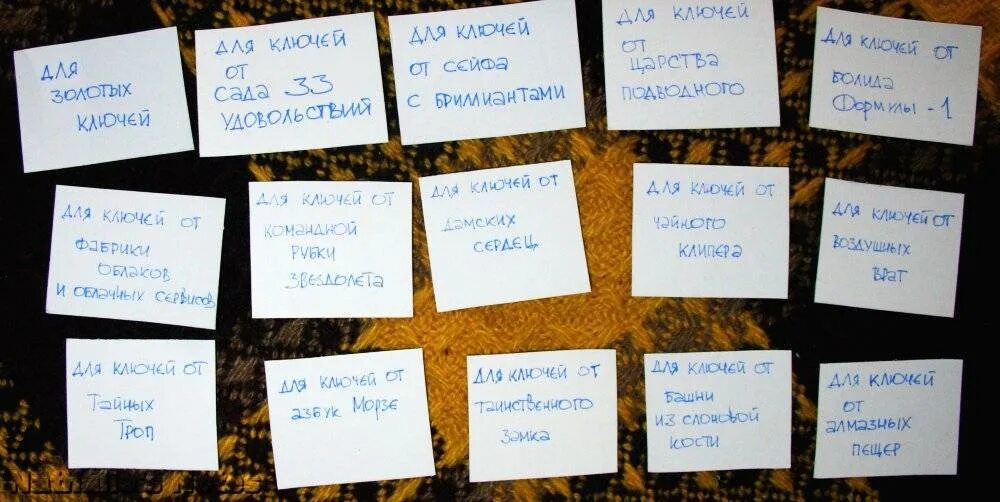 для
золотых
ключей
для ключей
от
сада 33
удовольствий
для ключей
от сейфа
с бриллиантами
для ключей
от
царства
подводного
для ключей от
болида
Формулы-1
для ключей от
фабрики
облаков
и облачных сервисов
для ключей от
командной
рубки
звездолета
для ключей от
дамских
сердец
для ключей от
чайного
клипера
для ключей от
воздушных
врат
для ключей от
тайных
троп
для ключей от
азбук Морзе
для ключей от
таинственного
замка
для ключей от
башни
из слоновой
кости
для ключей
от
алмазных
пещер